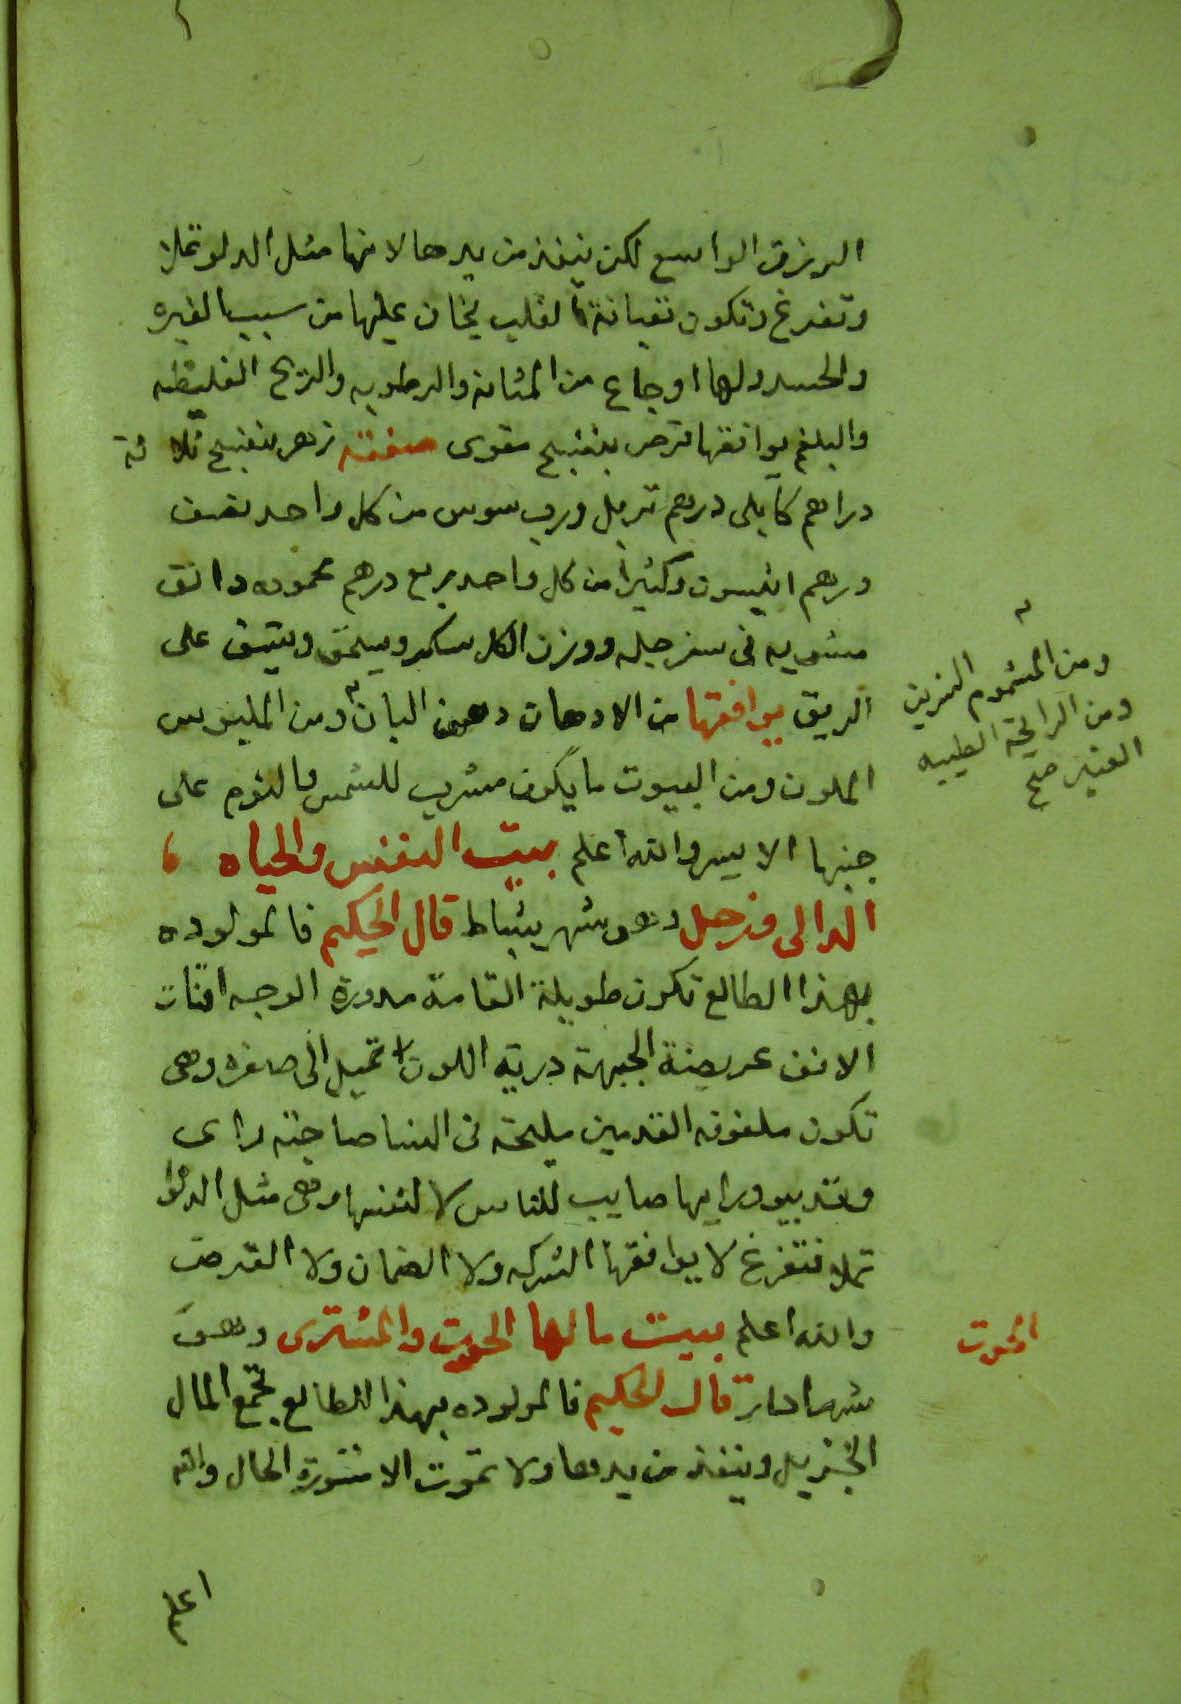 الرزق الواسع لكن ينفذ من يدها لانها مثل الدلو تملا
وتفرغ وتكون تعبانة القلب يخان عليها من سبب الغيره
والحسد ولها اوجاع من المثانه والرطوبه والريح الغليظه
والبلغم يوافقها قرص بنفسج مقوى صفته زهر بنفسج ثلاثة
دراهم كابلى درهم تربل ورب سوس من كل واحد نصف
درهم انيسون وكثيرا من كل واحد ربع درهم محموده دانق
مشويه فى سفرجله ووزن الكل سكر ويسحق ويستف على
الريق يوافقها من الادهان دهن البان ومن الملبوس
ومن المشموم النسرين
ومن الرايحة الطيبه
العنبر صح
الملون ومن البيوت ما يكون مشرب للشمس والنوم على
جنبها الايسر والله اعلم بيت النفس والحياه
الدالى وزحل وهو شهر شباط قال الحكيم فالمولوده
بهذا الطالع تكون طويلة القامة مدورة الوجه اقنات
الانف عريضة الجبهة درية اللون تميل الى صفره وهى
تكون ملفوفه القدمين مليحة فى النسا صاحبة راى
وتدبير ورايها صايب للناس لا لنفسها وهى مثل الدلو
تملا فتفرغ لا يوافقها الشركه ولا الضمان ولا القرض
والله اعلم بيت مالها الحوت والمشترى وهو
الحوت
شهر ادار قال الحكيم فالمولوده بهذا الطالع تجمع المال
الجزيل وينفذ من يدها ولا تموت الا مستورة الحال والله
اعلم